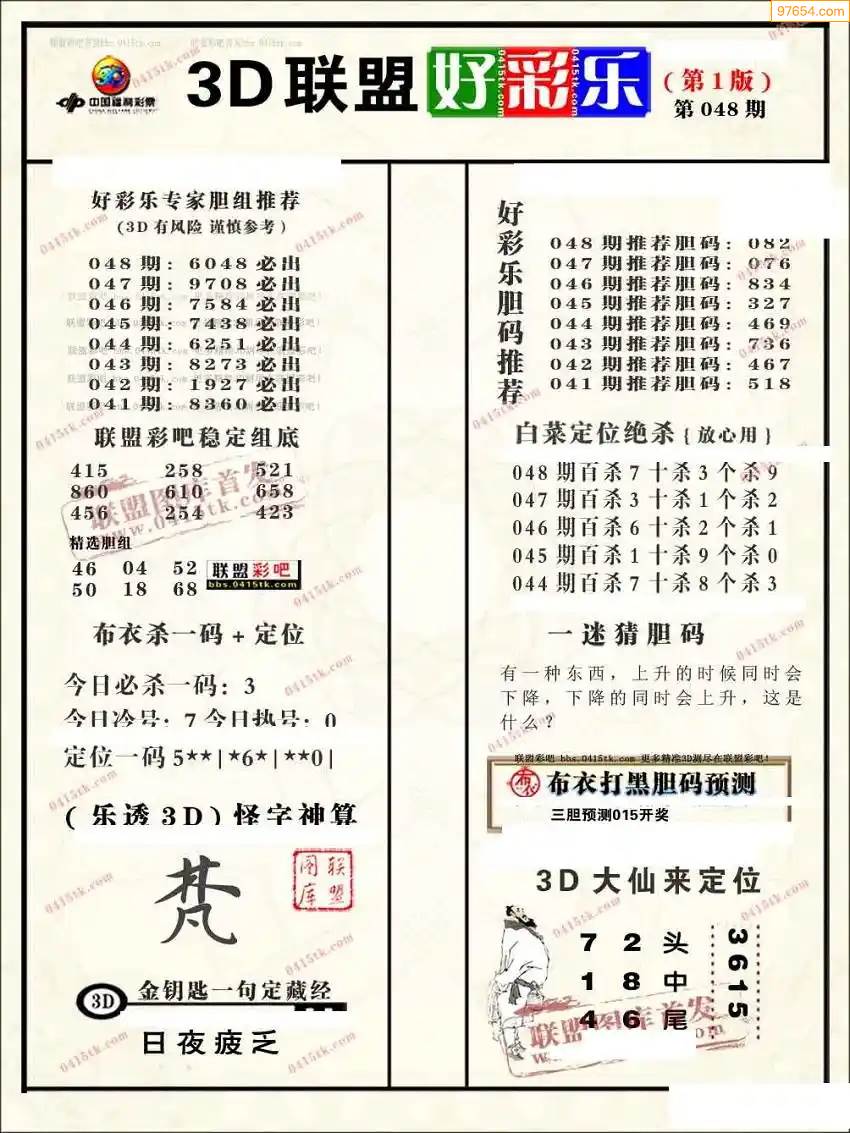 97654.com
3D联盟好彩乐
(第1版)
第048期
中国福利彩票
CHINA WELFARE LOTTERY
好彩乐专家胆组推荐
(3D有风险 谨慎参考)
048期: 6048必出
047期: 9708必出
046期: 7584必出
045期: 7438必出
044期: 6251必出
043期: 8273必出
042期: 1927必出
041期: 8360必出
联盟彩吧稳定组底
415 258 521
860 610 658
456 254 423
联盟图库首发
www.0415tk.com
精选胆组
46 04 52
50 18 68
联盟彩吧
bbs.0415tk.com
布衣杀一码+定位
今日必杀一码: 3
今日冷号: 7 今日热号: 0
定位一码 5**|*6*|**0|
(乐透3D)怪字神算
梵
联盟图库
3D 金钥匙一句定藏经
日夜疲乏
好彩乐胆码推荐
048期推荐胆码: 082
047期推荐胆码: 076
046期推荐胆码: 834
045期推荐胆码: 327
044期推荐胆码: 469
043期推荐胆码: 736
042期推荐胆码: 467
041期推荐胆码: 518
白菜定位绝杀{放心用}
048期百杀7十杀3个杀9
047期百杀3十杀1个杀2
046期百杀6十杀2个杀1
045期百杀1十杀9个杀0
044期百杀7十杀8个杀3
一迷猜胆码
有一种东西，上升的时候同时会
下降，下降的同时会上升，这是
什么？
联盟彩吧 bbs.0415tk.com 更多精准3D测尽在联盟彩吧!
布衣 布衣打黑胆码预测
三胆预测015开奖
3D大仙来定位
7 2 头
1 8 中
4 6 尾
3615
联盟图库首发
0415tk.com